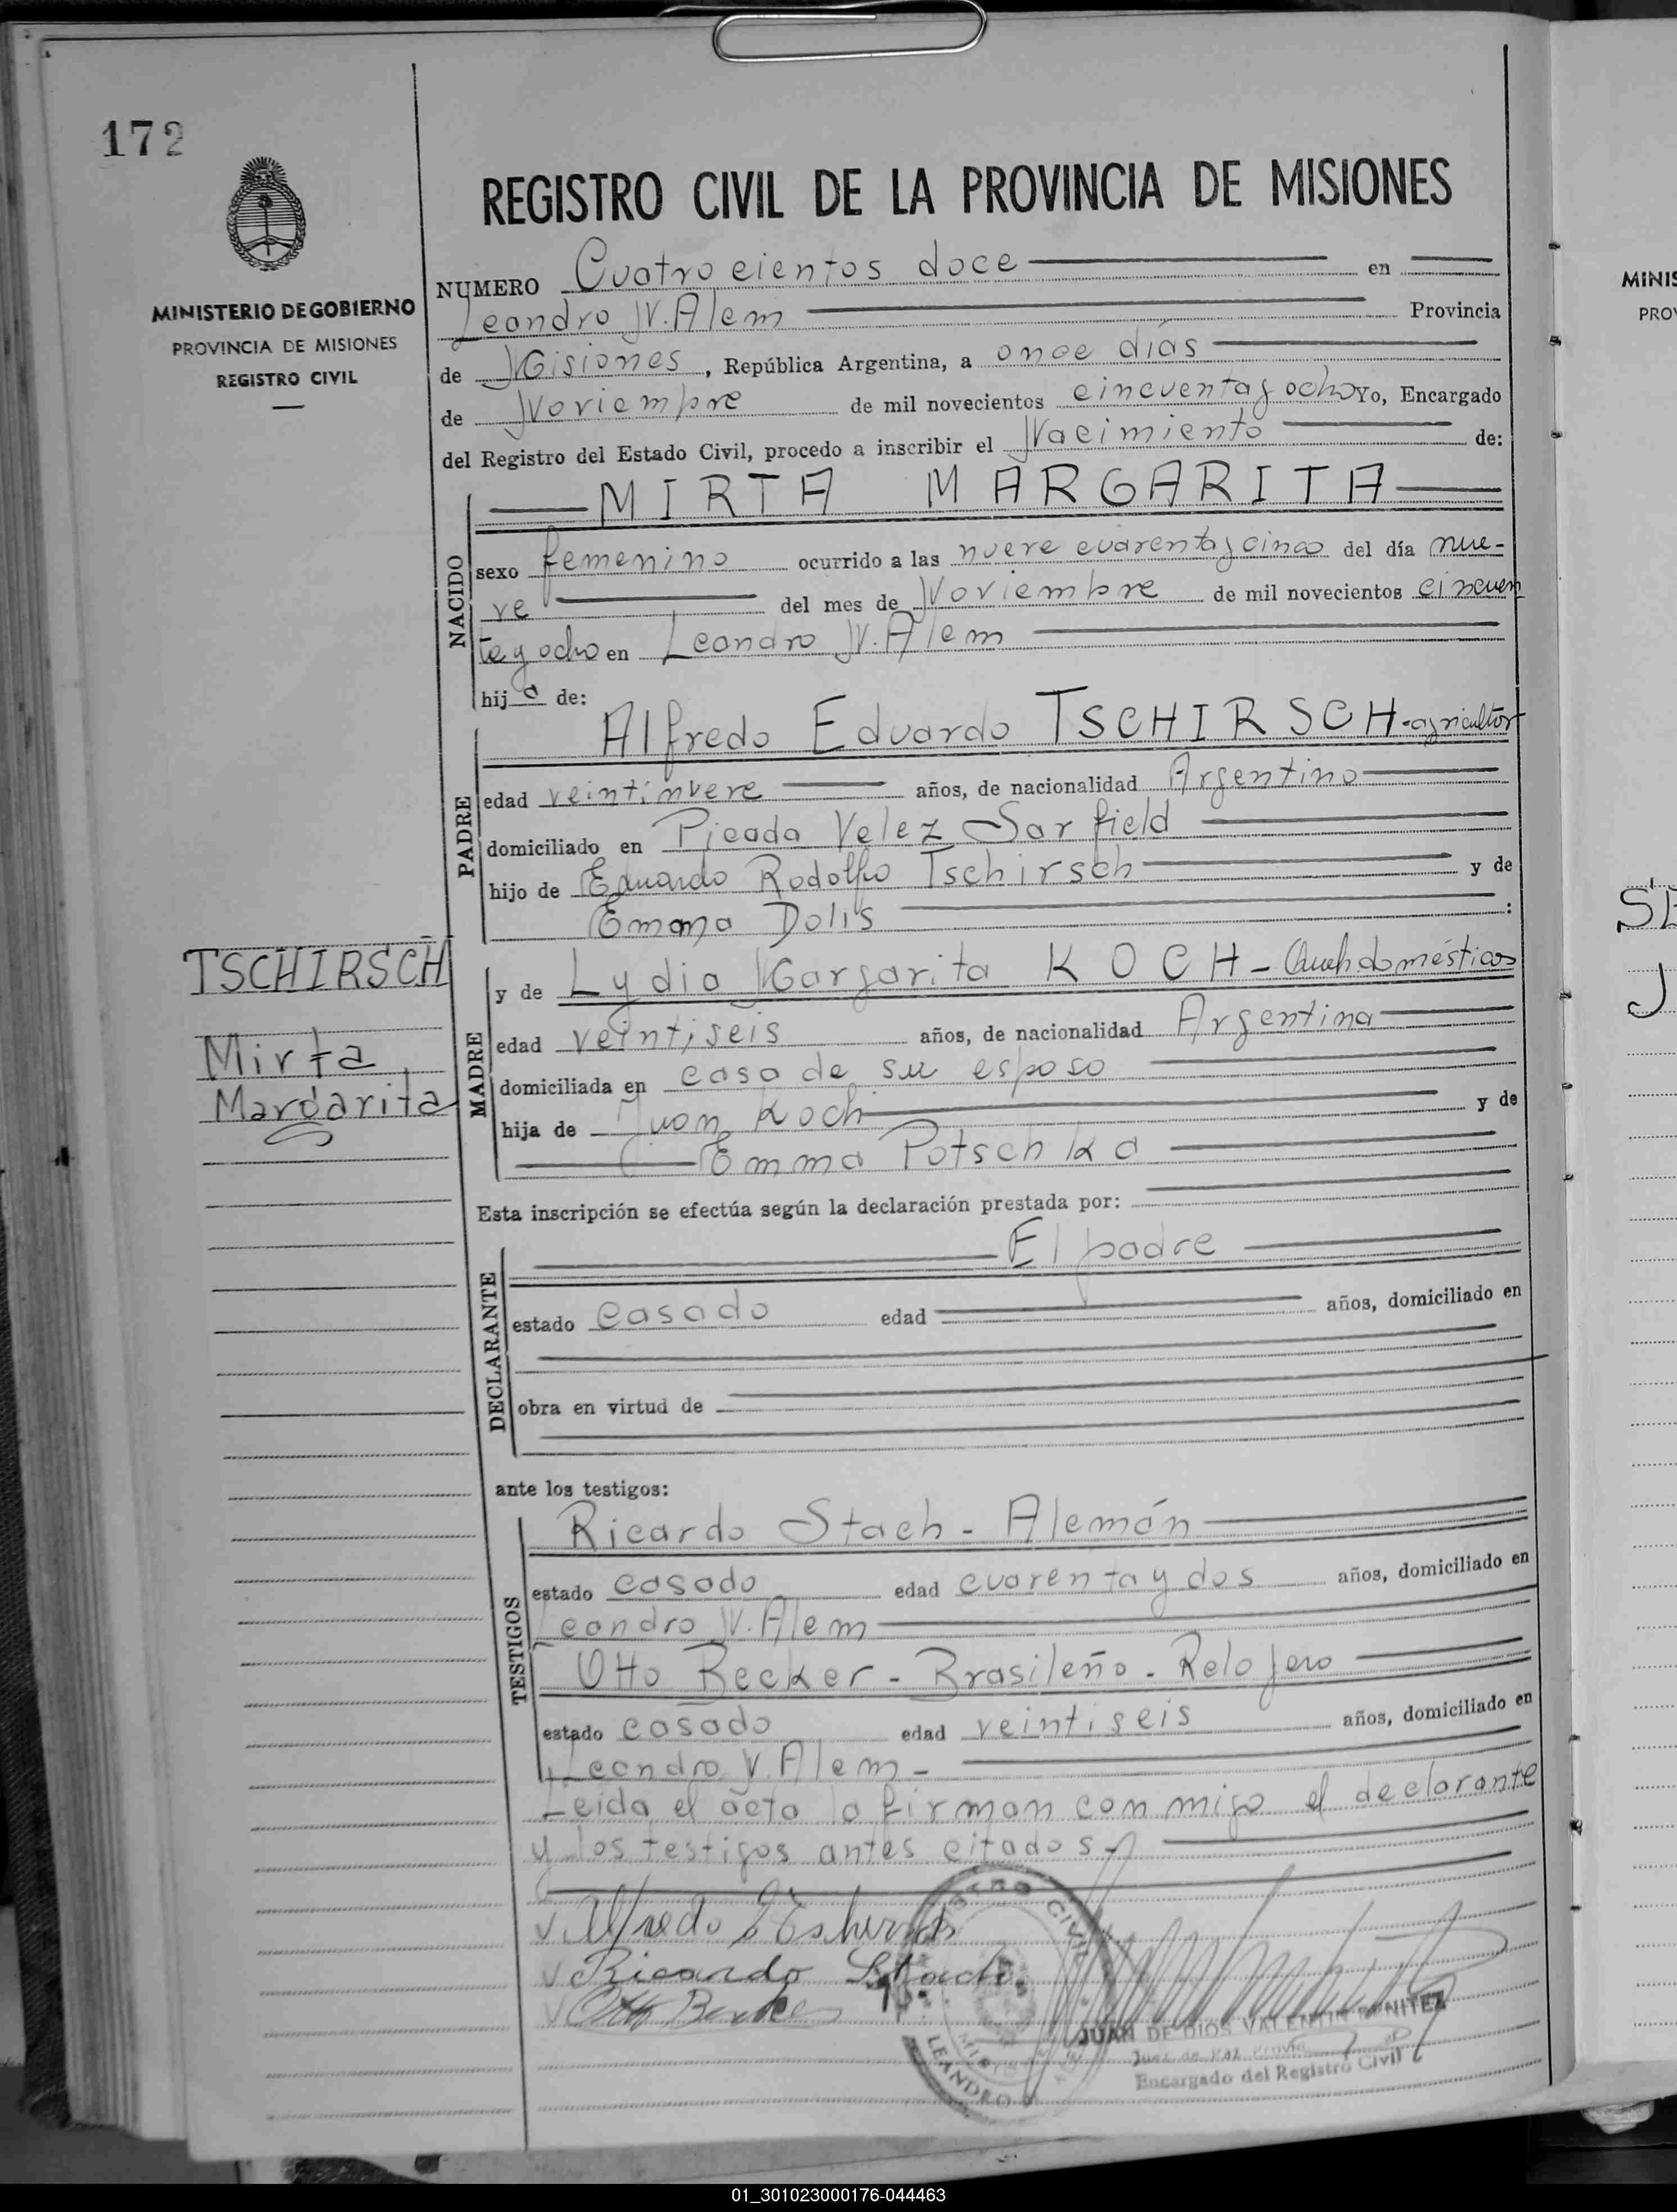 172
MINISTERIO DE GOBIERNO
PROVINCIA DE MISIONES
REGISTRO CIVIL
REGISTRO CIVIL DE LA PROVINCIA DE MISIONES
NUMERO Cuatrocientos doce en
Leandro N. Alem Provincia
de Misiones, República Argentina, a once días
de Noviembre de mil novecientos cincuenta y ocho Yo, Encargado
del Registro del Estado Civil, procedo a inscribir el Nacimiento de:
NACIDO
MIRTA MARGARITA
sexo femenino ocurrido a las nueve cuarenta y cinco del día nue-
ve del mes de Noviembre de mil novecientos cincuen
ta y ocho en Leandro N. Alem
hija de:
PADRE
Alfredo Eduardo TSCHIRSCH - agricultor
edad veintinueve años, de nacionalidad Argentino
domiciliado en Picada Velez Sarfield
hijo de Eduardo Rodolfo Tschirsch y de
Emma Dolis :
TSCHIRSCH
Mirta
Margarita
MADRE
y de Lydia Margarita KOCH - domésticos
edad veintiseis años, de nacionalidad Argentina
domiciliada en casa de su esposo
hija de Juan Koch y de
Emma Potschka
Esta inscripción se efectúa según la declaración prestada por:
DECLARANTE
El padre
estado casado edad años, domiciliado en
obra en virtud de
ante los testigos:
TESTIGOS
Ricardo Stach - Alemán
estado casado edad cuarenta y dos años, domiciliado en
Leandro N. Alem
Otto Becker - Brasileño - Relojero
estado casado edad veintiseis años, domiciliado en
Leandro N. Alem -
Leida el acta la firman conmigo el declarante
y los testigos antes citados -
Alfredo E Tschirsch
Ricardo Stach
Otto Becker
CIVIL
LEANDRO N.
JUAN DE DIOS VALENTIN BENITEZ
Juez de Paz
Encargado del Registro Civil
MINIS
PROV
SE
J
01_301023000176-044463